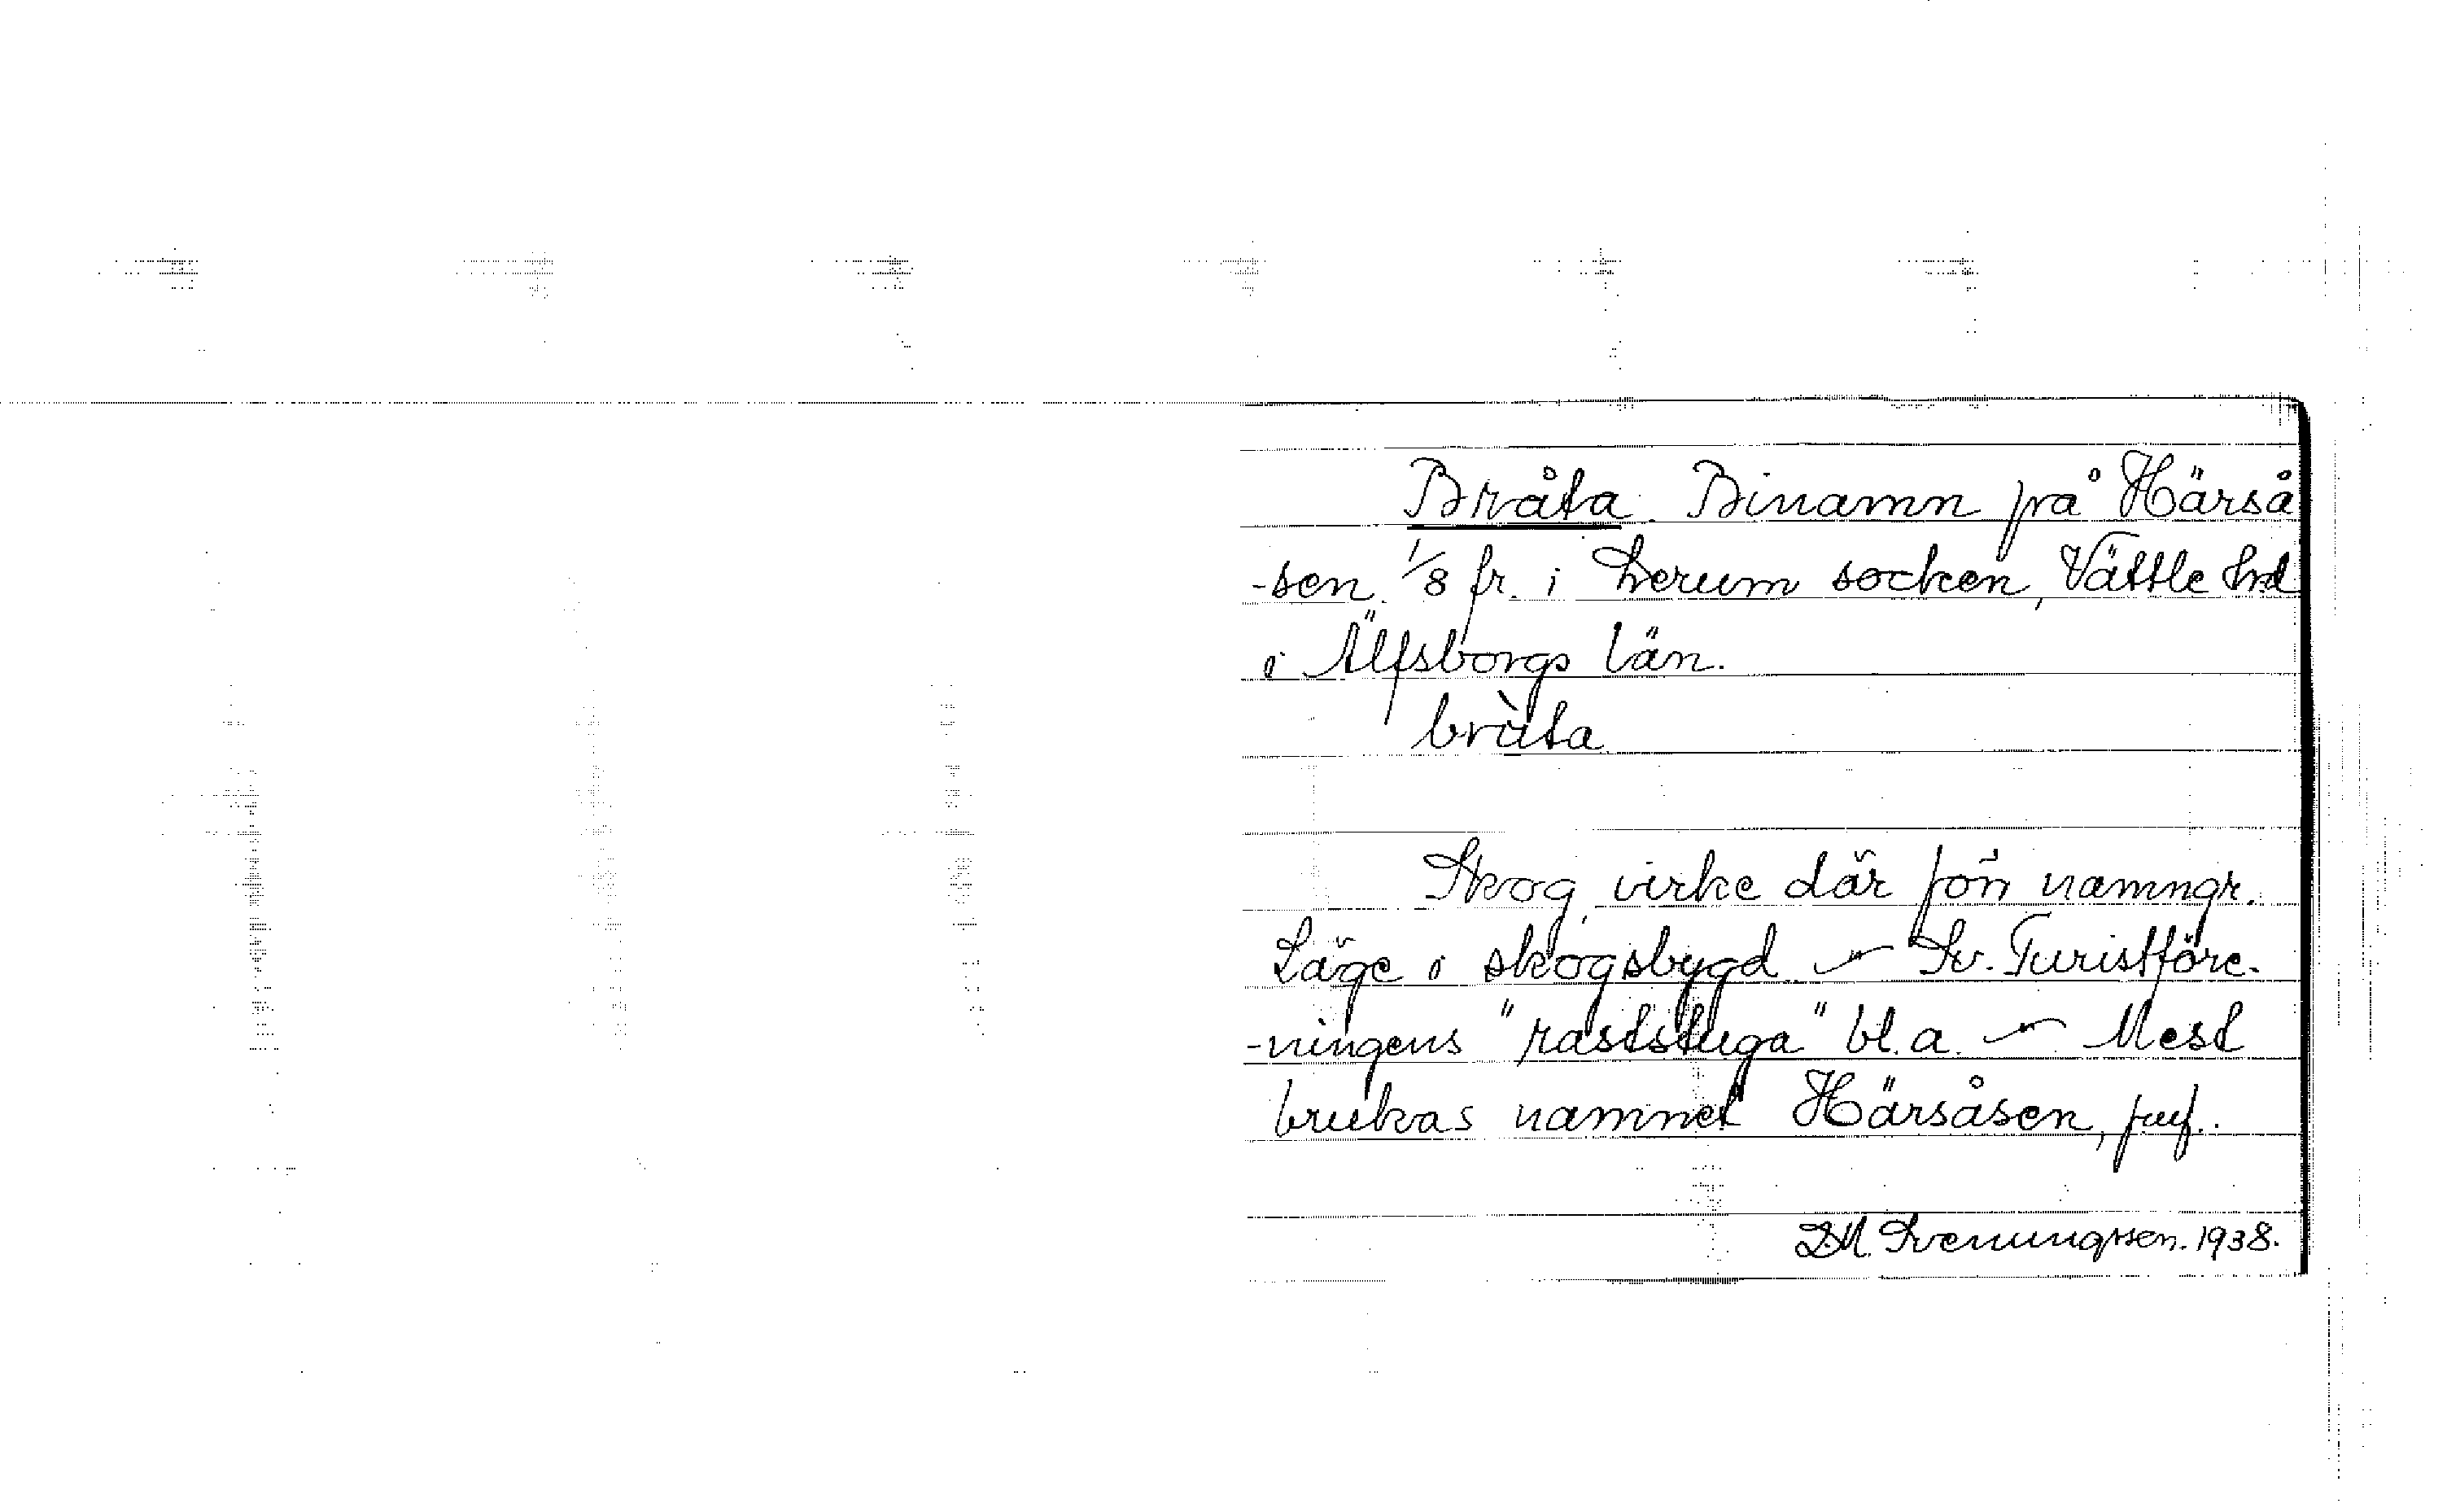 Bråta. Binamn på Härså
-sen. 1/8 fr. i Lerum socken, Vättle hd
i Älfsborgs län.
bràta
Skog, virke där förr namngr.
Läge i skogsbygd — Sv. Turistföre-
-ningens "raststuga" bl. a. — Mest
brukas namnet Härsåsen,
D.M. Svenungsson. 1938.